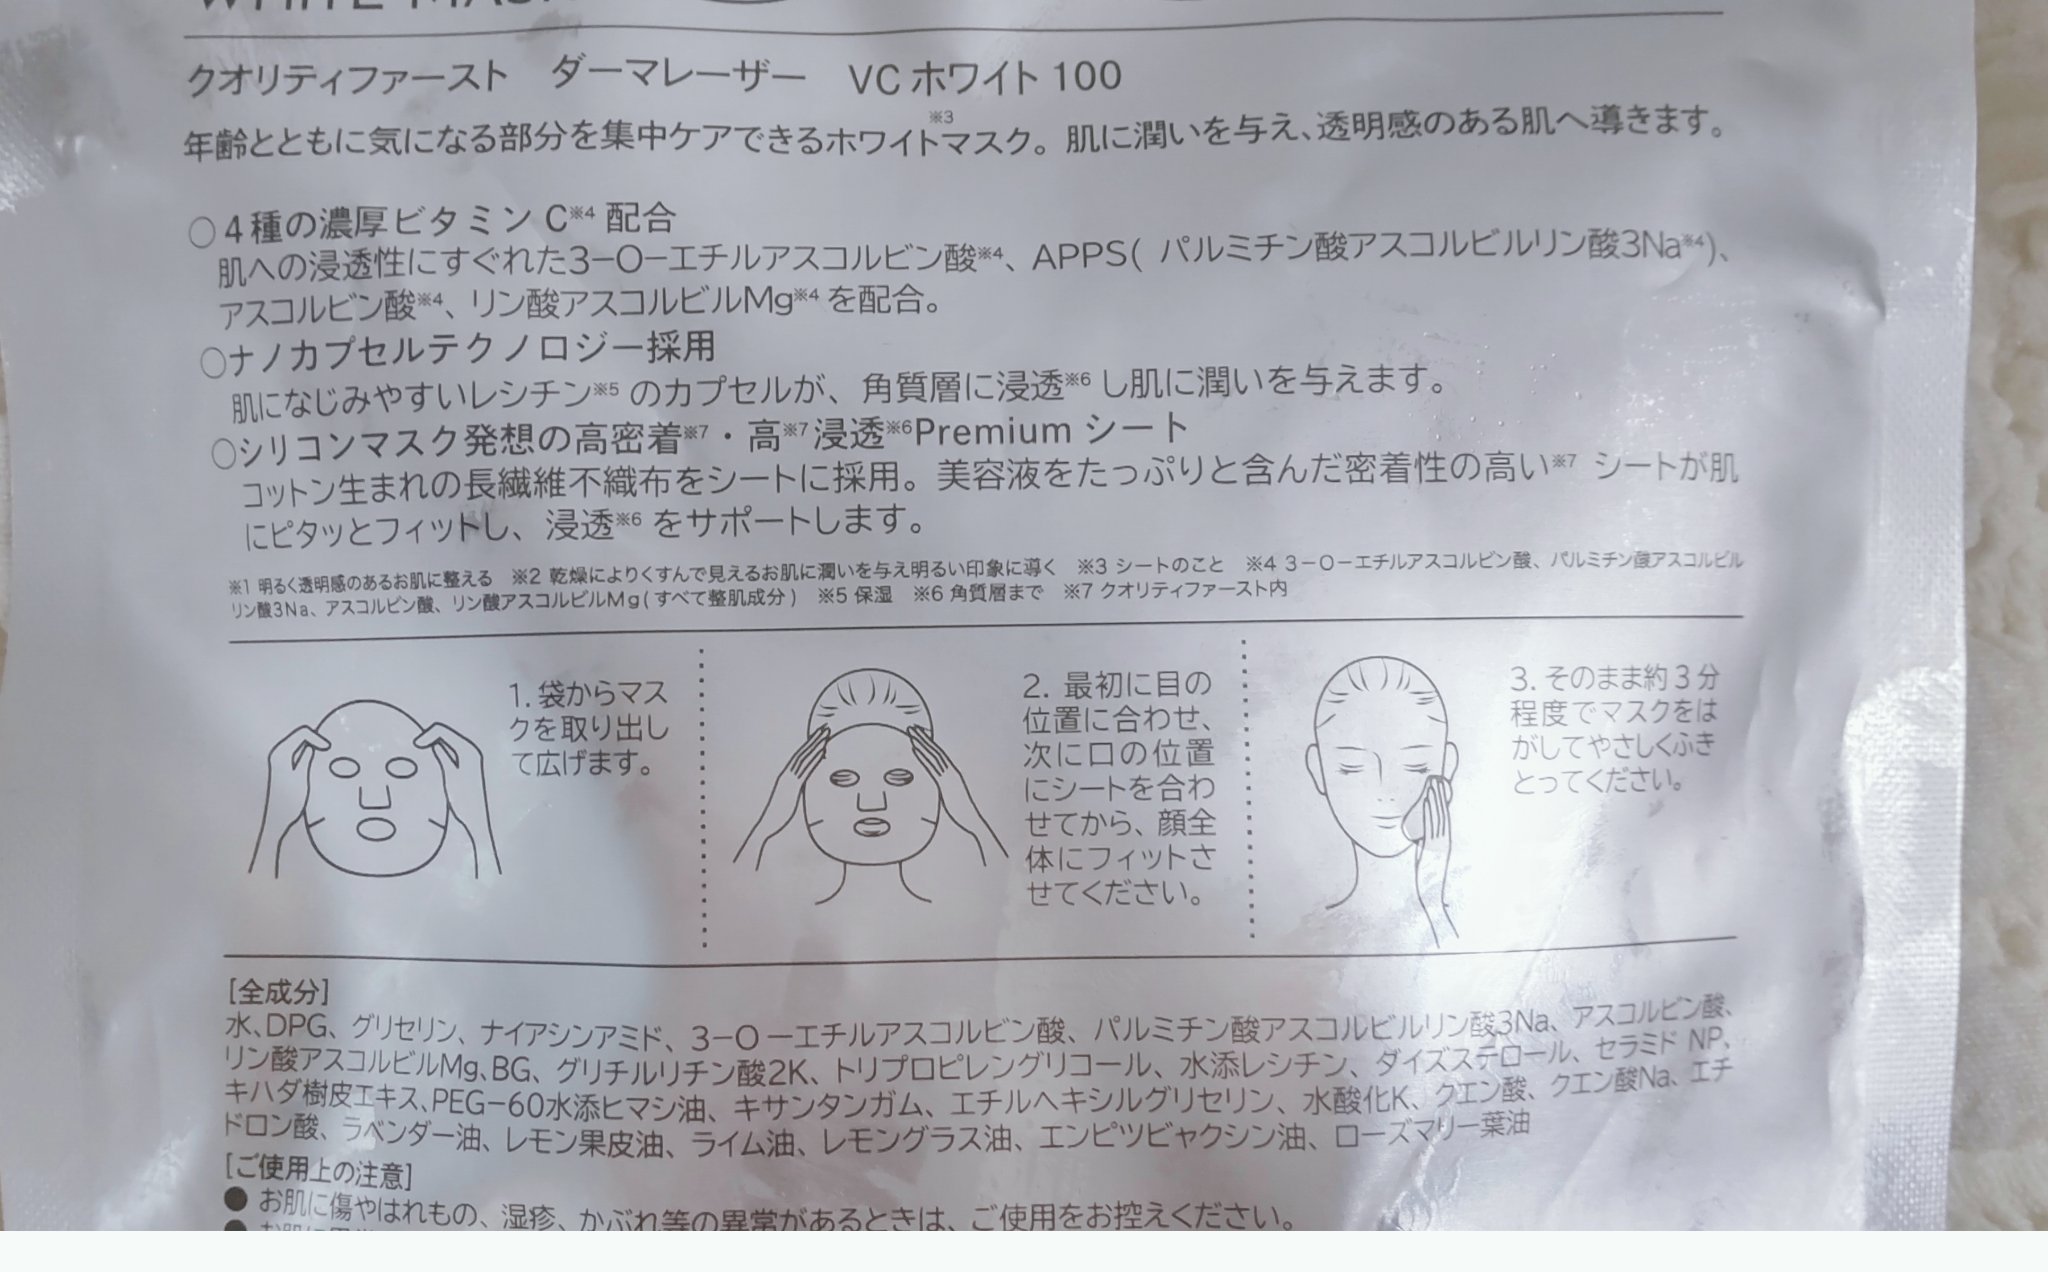 WHITE MASK
クオリティファースト　ダーマレーザー　VCホワイト100
年齢とともに気になる部分を集中ケアできるホワイトマスク※3。肌に潤いを与え、透明感のある肌へ導きます。
○4種の濃厚ビタミンC※4配合
肌への浸透性にすぐれた3−O−エチルアスコルビン酸※4、APPS( パルミチン酸アスコルビルリン酸3Na※4)、
アスコルビン酸※4、リン酸アスコルビルMg※4を配合。
○ナノカプセルテクノロジー採用
肌になじみやすいレシチン※5のカプセルが、角質層に浸透※6し肌に潤いを与えます。
○シリコンマスク発想の高密着※7・高※7浸透※6Premium シート
コットン生まれの長繊維不織布をシートに採用。美容液をたっぷりと含んだ密着性の高い※7 シートが肌
にピタッとフィットし、浸透※6をサポートします。
※1 明るく透明感のあるお肌に整える　※2 乾燥によりくすんで見えるお肌に潤いを与え明るい印象に導く　※3 シートのこと　※4 3−O−エチルアスコルビン酸、パルミチン酸アスコルビル
リン酸3Na、アスコルビン酸、リン酸アスコルビルMg(すべて整肌成分)　※5 保湿　※6 角質層まで　※7 クオリティファースト内
1. 袋からマス
クを取り出し
て広げます。
2. 最初に目の
位置に合わせ、
次に口の位置
にシートを合わ
せてから、顔全
体にフィットさ
せてください。
3. そのまま約3分
程度でマスクをは
がしてやさしくふき
とってください。
[全成分]
水、DPG、グリセリン、ナイアシンアミド、3−O−エチルアスコルビン酸、パルミチン酸アスコルビルリン酸3Na、アスコルビン酸、
リン酸アスコルビルMg、BG、グリチルリチン酸2K、トリプロピレングリコール、水添レシチン、ダイズステロール、セラミド NP、
キハダ樹皮エキス、PEG−60水添ヒマシ油、キサンタンガム、エチルヘキシルグリセリン、水酸化K、クエン酸、クエン酸Na、エチ
ドロン酸、ラベンダー油、レモン果皮油、ライム油、レモングラス油、エンピツビャクシン油、ローズマリー葉油
[ご使用上の注意]
● お肌に傷やはれもの、湿疹、かぶれ等の異常があるときは、ご使用をお控えください。